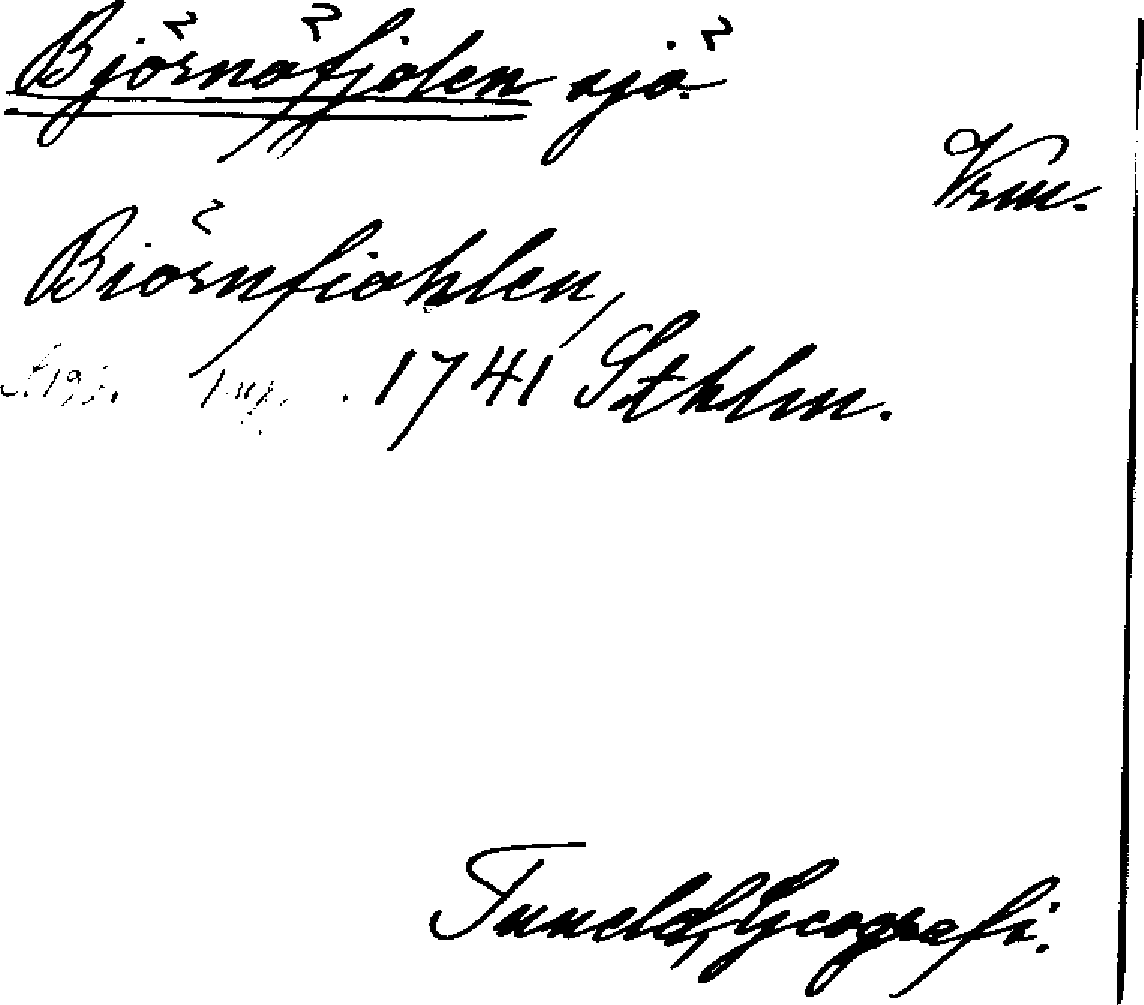 Björnöfjolen sjö
Vrm.
Biörnfiohlen,
S. 193. 1741 Sthlm.
Tunelds Geografi.